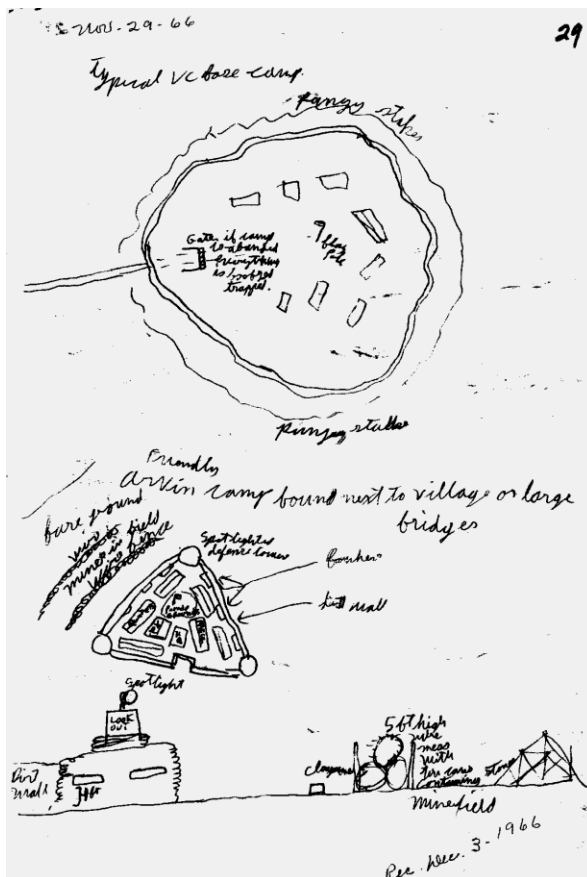 Nov-29-66
29
typical VC base camp
Pungy stakes
Gate if camp
is abanded
everything
is boobed
trapped.
flag
Pole
Pungy stakes
Friendly
Arvin camp bound next to village or large
bridges
bare ground
wire
mines in field
wire fence
Spotlights
defence tower
bunkers
dirt wall
Spotlight
LOOK
OUT
Dirt
Wall
5 ft high
wire
meas
with
tin cans
containing stones
Claymore
Minefield
Rec. Dec. 3-1966